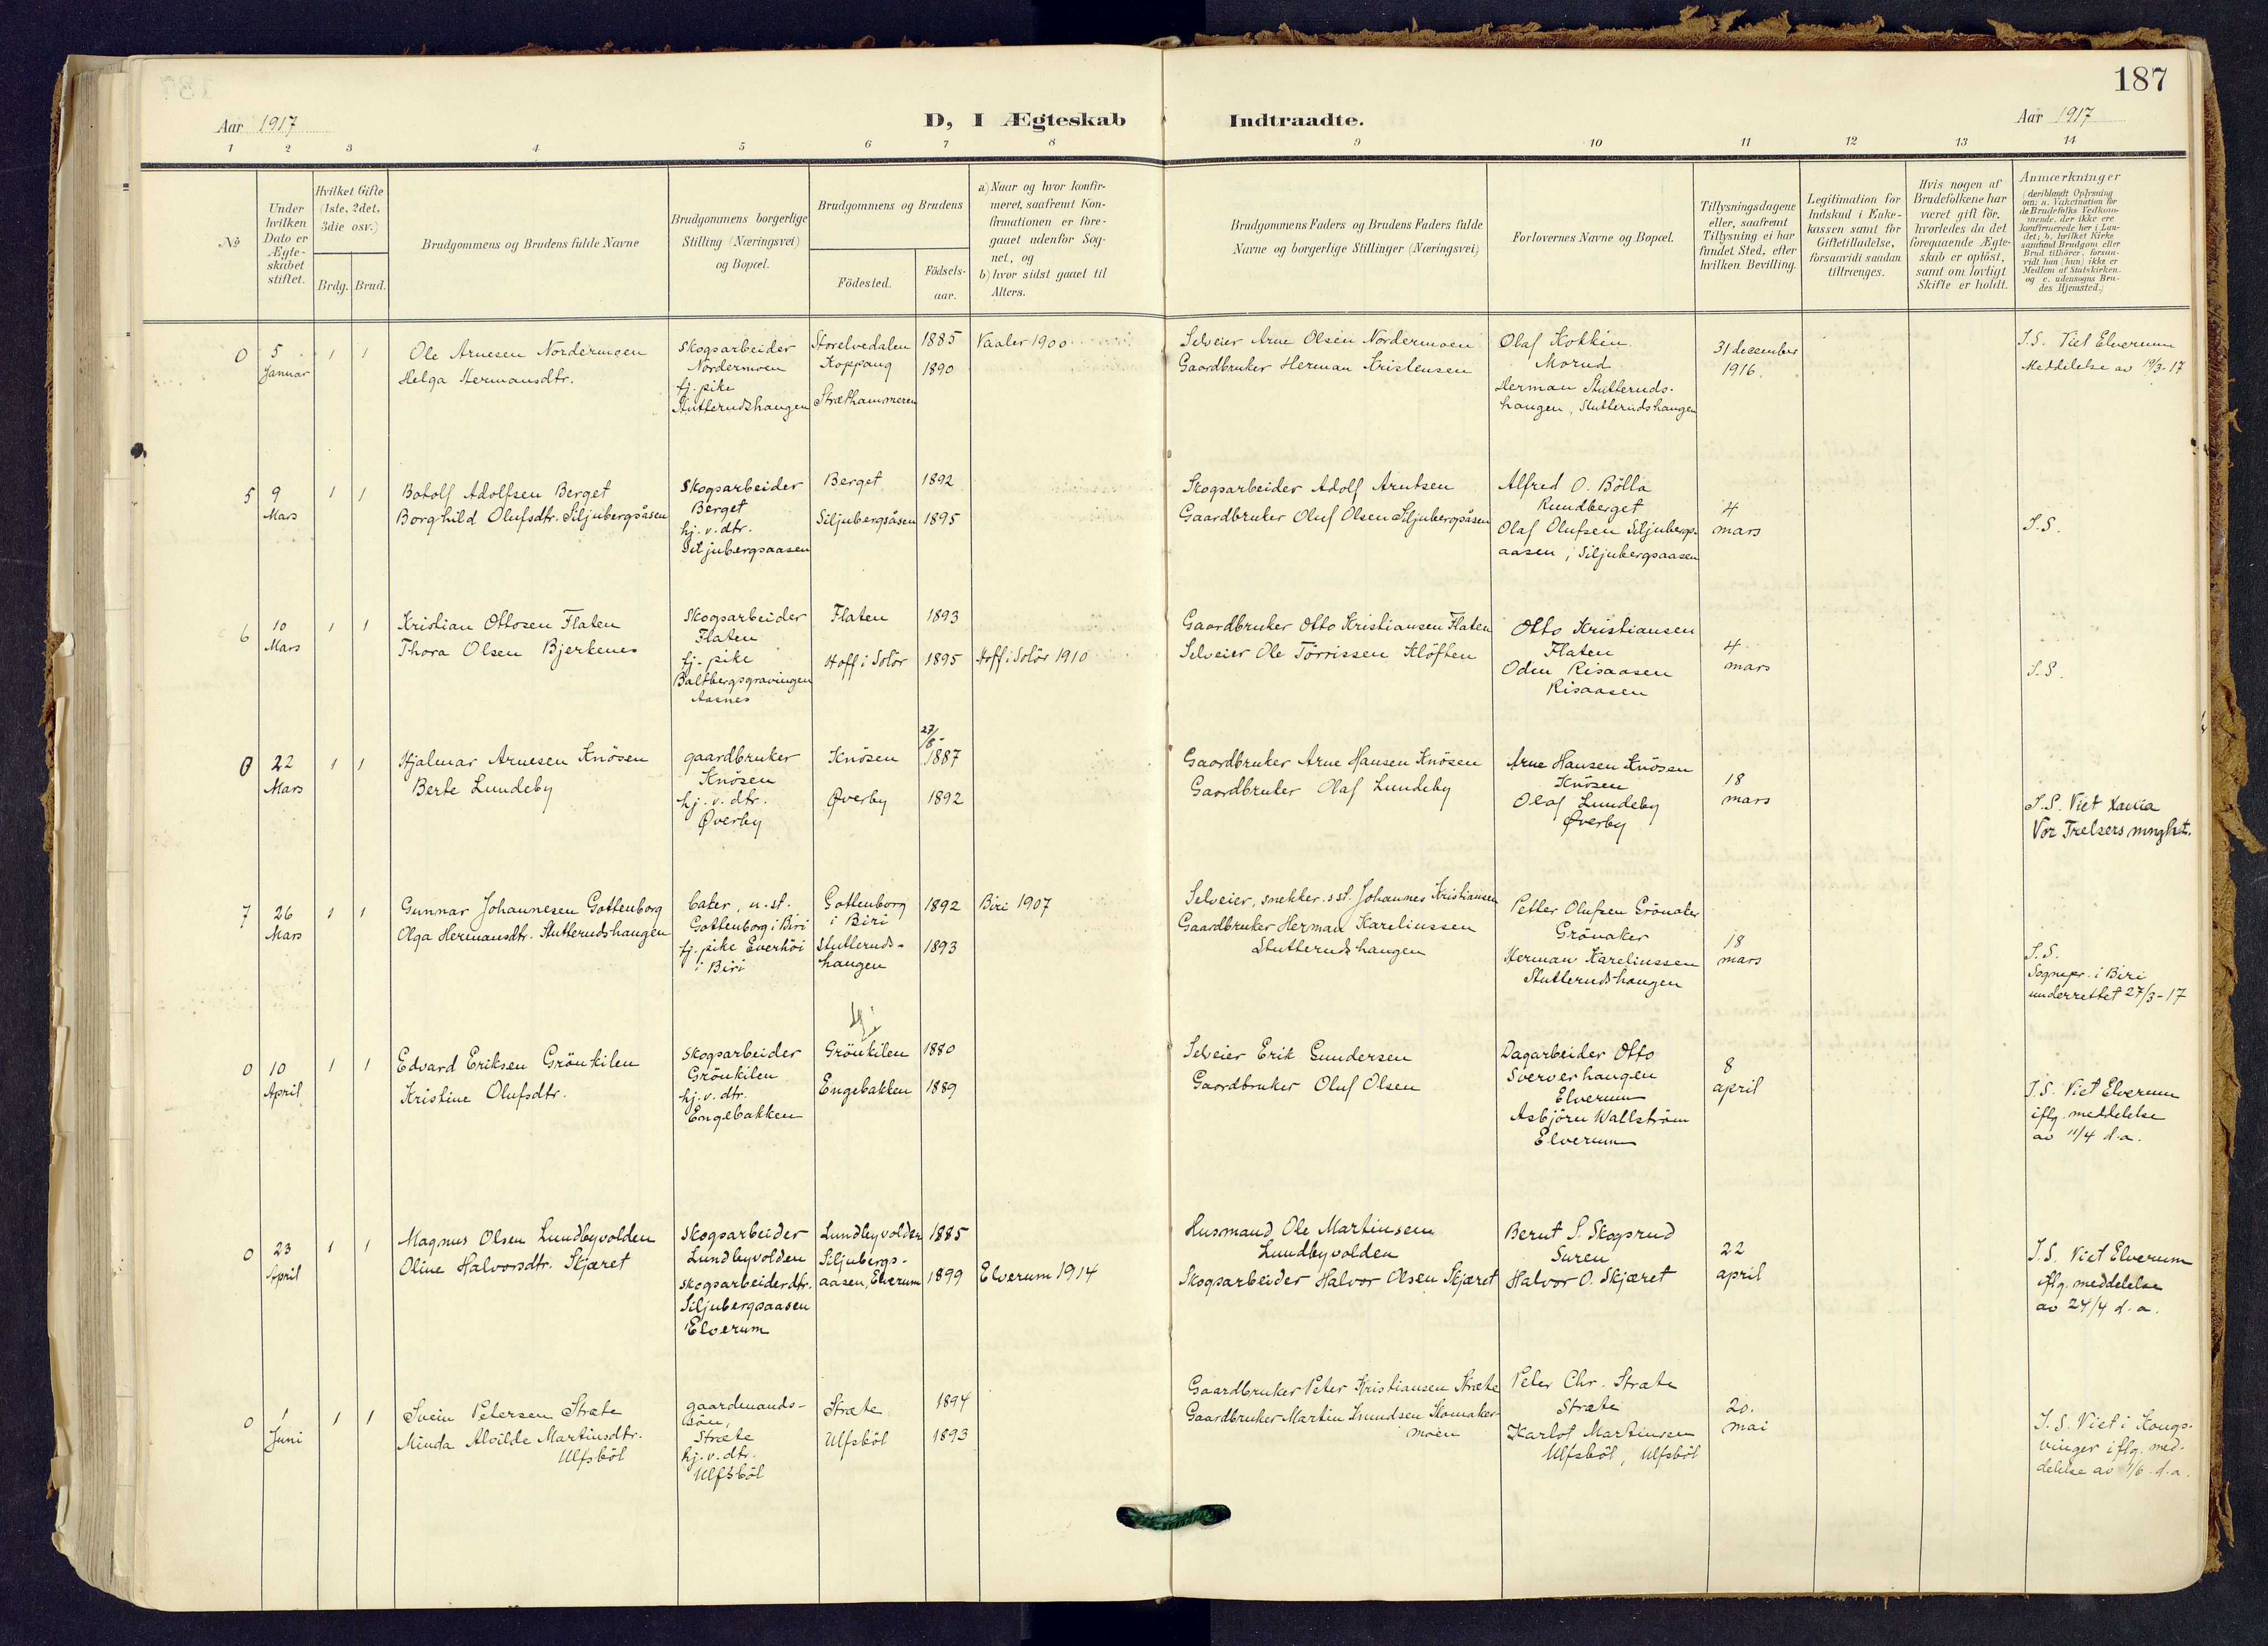 187
Aar 1917
D, I Ægteskab Indtraadte.
Aar 1917
1 2 3 4 5 6 7 8 9 10 11 12 13 14
No
Under hvilken Dato er Ægteskabet stiftet.
Hvilket Gifte (1ste, 2det, 3die osv.)
Brdg. Brud.
Brudgommens og Brudens fulde Navne
Brudgommens borgerlige Stilling (Næringsvei) og Bopæl.
Brudgommens og Brudens
Födested.
Födselsaar.
a) Naar og hvor konfirmeret, saafremt Konfirmationen er foregaaet udenfor Sognet, og
b) hvor sidst gaaet til Alters.
Brudgommens Faders og Brudens Faders fulde Navne og borgerlige Stillinger (Næringsvei)
Forlovernes Navne og Bopæl.
Tillysningsdagene eller, saafremt Tillysning ei har fundet Sted, efter hvilken Bevilling.
Legitimation for Indskud i Enkekassen samt for Giftetilladelse, forsaavidt saadan tiltrænges.
Hvis nogen af Brudefolkene har været gift för, hvorledes da det foregaaende Ægteskab er oplöst, samt om lovligt Skifte er holdt.
Anmærkninger
(deriblandt Oplysning om: a. Vakcination for de Brudefolks Vedkommende, der ikke ere konfirmerede her i Landet; b. hvilket Kirkesamfund Brudgom eller Brud tilhörer, forsaavidt han (hun) ikke er Medlem af Statskirken, og c. udensogns Brudes Hjemsted.)
0
5
Januar
1 1
Ole Arnesen Nordermoen
Helga Hermansdtr.
Skogsarbeider
Nordermoen
tj. pike
Stutterudshaugen
Storelvedalen
Koppang
Strækhammeren
1885
1890
Vaaler 1900
Selveier Arne Olsen Nordermoen
Gaardbruker Herman Kristensen
Olaf Kokkin
Morud
Herman Stutteruds-
haugen, Stutterudshaugen
31 december
1916
I.S. Viet Elverum
Meddelelse av 19/3-17
5
9
Mars
1 1
Botolf Adolfsen Berget
Borghild Olufsdtr. Siljubergsåsen
Skogsarbeider
Berget
hj. v. dtr.
Siljubergsaasen
Berget
Siljubergsåsen
1892
1895
Skogsarbeider Adolf Arntsen
Gaardbruker Oluf Olsen Siljubergsåsen
Alfred O. Bölla
Rundberget
Olaf Olufsen Siljubergs-
aasen, Siljubergsaasen
4
mars
I.S.
6
10
Mars
1 1
Kristian Ottosen Flaten
Thora Olsen Bjerkenes
Skogsarbeider
Flaten
tj. pike
Baltbergsgravingen
Aasnes
Flaten
Hoff i Solör
1893
1895
Hoff i Solör 1910
Gaardbruker Otto Kristiansen Flaten
Selveier Ole Törrissen Klöften
Otto Kristiansen
Flaten
Oden Risaasen
Risaasen
4
mars
I.S.
0
22
Mars
1 1
Hjalmar Arnesen Knösen
Berte Lundeby
gaardbruker
Knösen
hj. v. dtr.
Øverby
Knösen
Øverby
27/8-
1887
1892
Gaardbruker Arne Hansen Knösen
Gaardbruker Olaf Lundeby
Arne Hansen Knösen
Knösen
Olaf Lundeby
Øverby
18
mars
I.S. Viet
Vor Frelsers
7
26
Mars
1 1
Gunnar Johannesen Gottenborg
Olga Hermansdtr. Stutterudshaugen
baker, u.st.
Gottenborg i Biri
tj. pike Everhöi
i Biri
Gottenborg
i Biri
Stutteruds-
haugen
1892
1893
Biri 1907
Selveier, snekker.sst. Johannes Kristiansen
Gaardbruker Herman Kareliussen
Stutterudshaugen
Petter Olufsen Grönaker
Grönaker
Herman Kareliussen
Stutterudshaugen
18
mars
I.S.
Sognepr. i Biri
underrettet 27/3-17
0
10
April
1 1
Edvard Eriksen Grönkilen
Kristine Olufsdtr.
Skogsarbeider
Grönkilen
hj. v. dtr.
Engebakken
Grönkilen
Engebakken
1880
1889
Selveier Erik Gundersen
Gaardbruker Oluf Olsen
Dagarbeider Otto
Sververhaugen
Elverum
Asbjörn Wallström
Elverum
8
april
I.S. Viet Elverum
iflg. meddelelse
av 11/4 d.a.
0
23
April
1 1
Magnus Olsen Lundbyvolden
Oline Halvorsdtr. Skjæret
Skogsarbeider
Lundbyvolden
skogsarbeiderdtr.
Siljubergsaasen
Elverum
Lundbyvolden
Siljubergs-
aasen, Elverum
1885
1899
Elverum 1914
Husmand Ole Martinsen
Lundbyvolden
Skogsarbeider Halvor Olsen Skjæret
Bernt S. Skogsrud
Suren
Halvor O. Skjæret
22
april
I.S. Viet Elverum
iflg. meddelelse
av 24/4 d.a.
0
1
Juni
1 1
Svein Petersen Stræte
Minda Alvilde Martinsdtr.
Ulfsböl
gaardmands-
sön,
Stræte
hj. v. dtr.
Ulfsböl
Stræte
Ulfsböl
1894
1893
Gaardbruker Peter Kristiansen Stræte
Gaardbruker Martin Knudsen Skomaker-
moen
Peter Chr. Stræte
Stræte
Karlot Martinsen
Ulfsböl, Ulfsböl
20.
mai
I.S. Viet i Kongs-
vinger iflg. med-
delelse av 1/6 d.a.